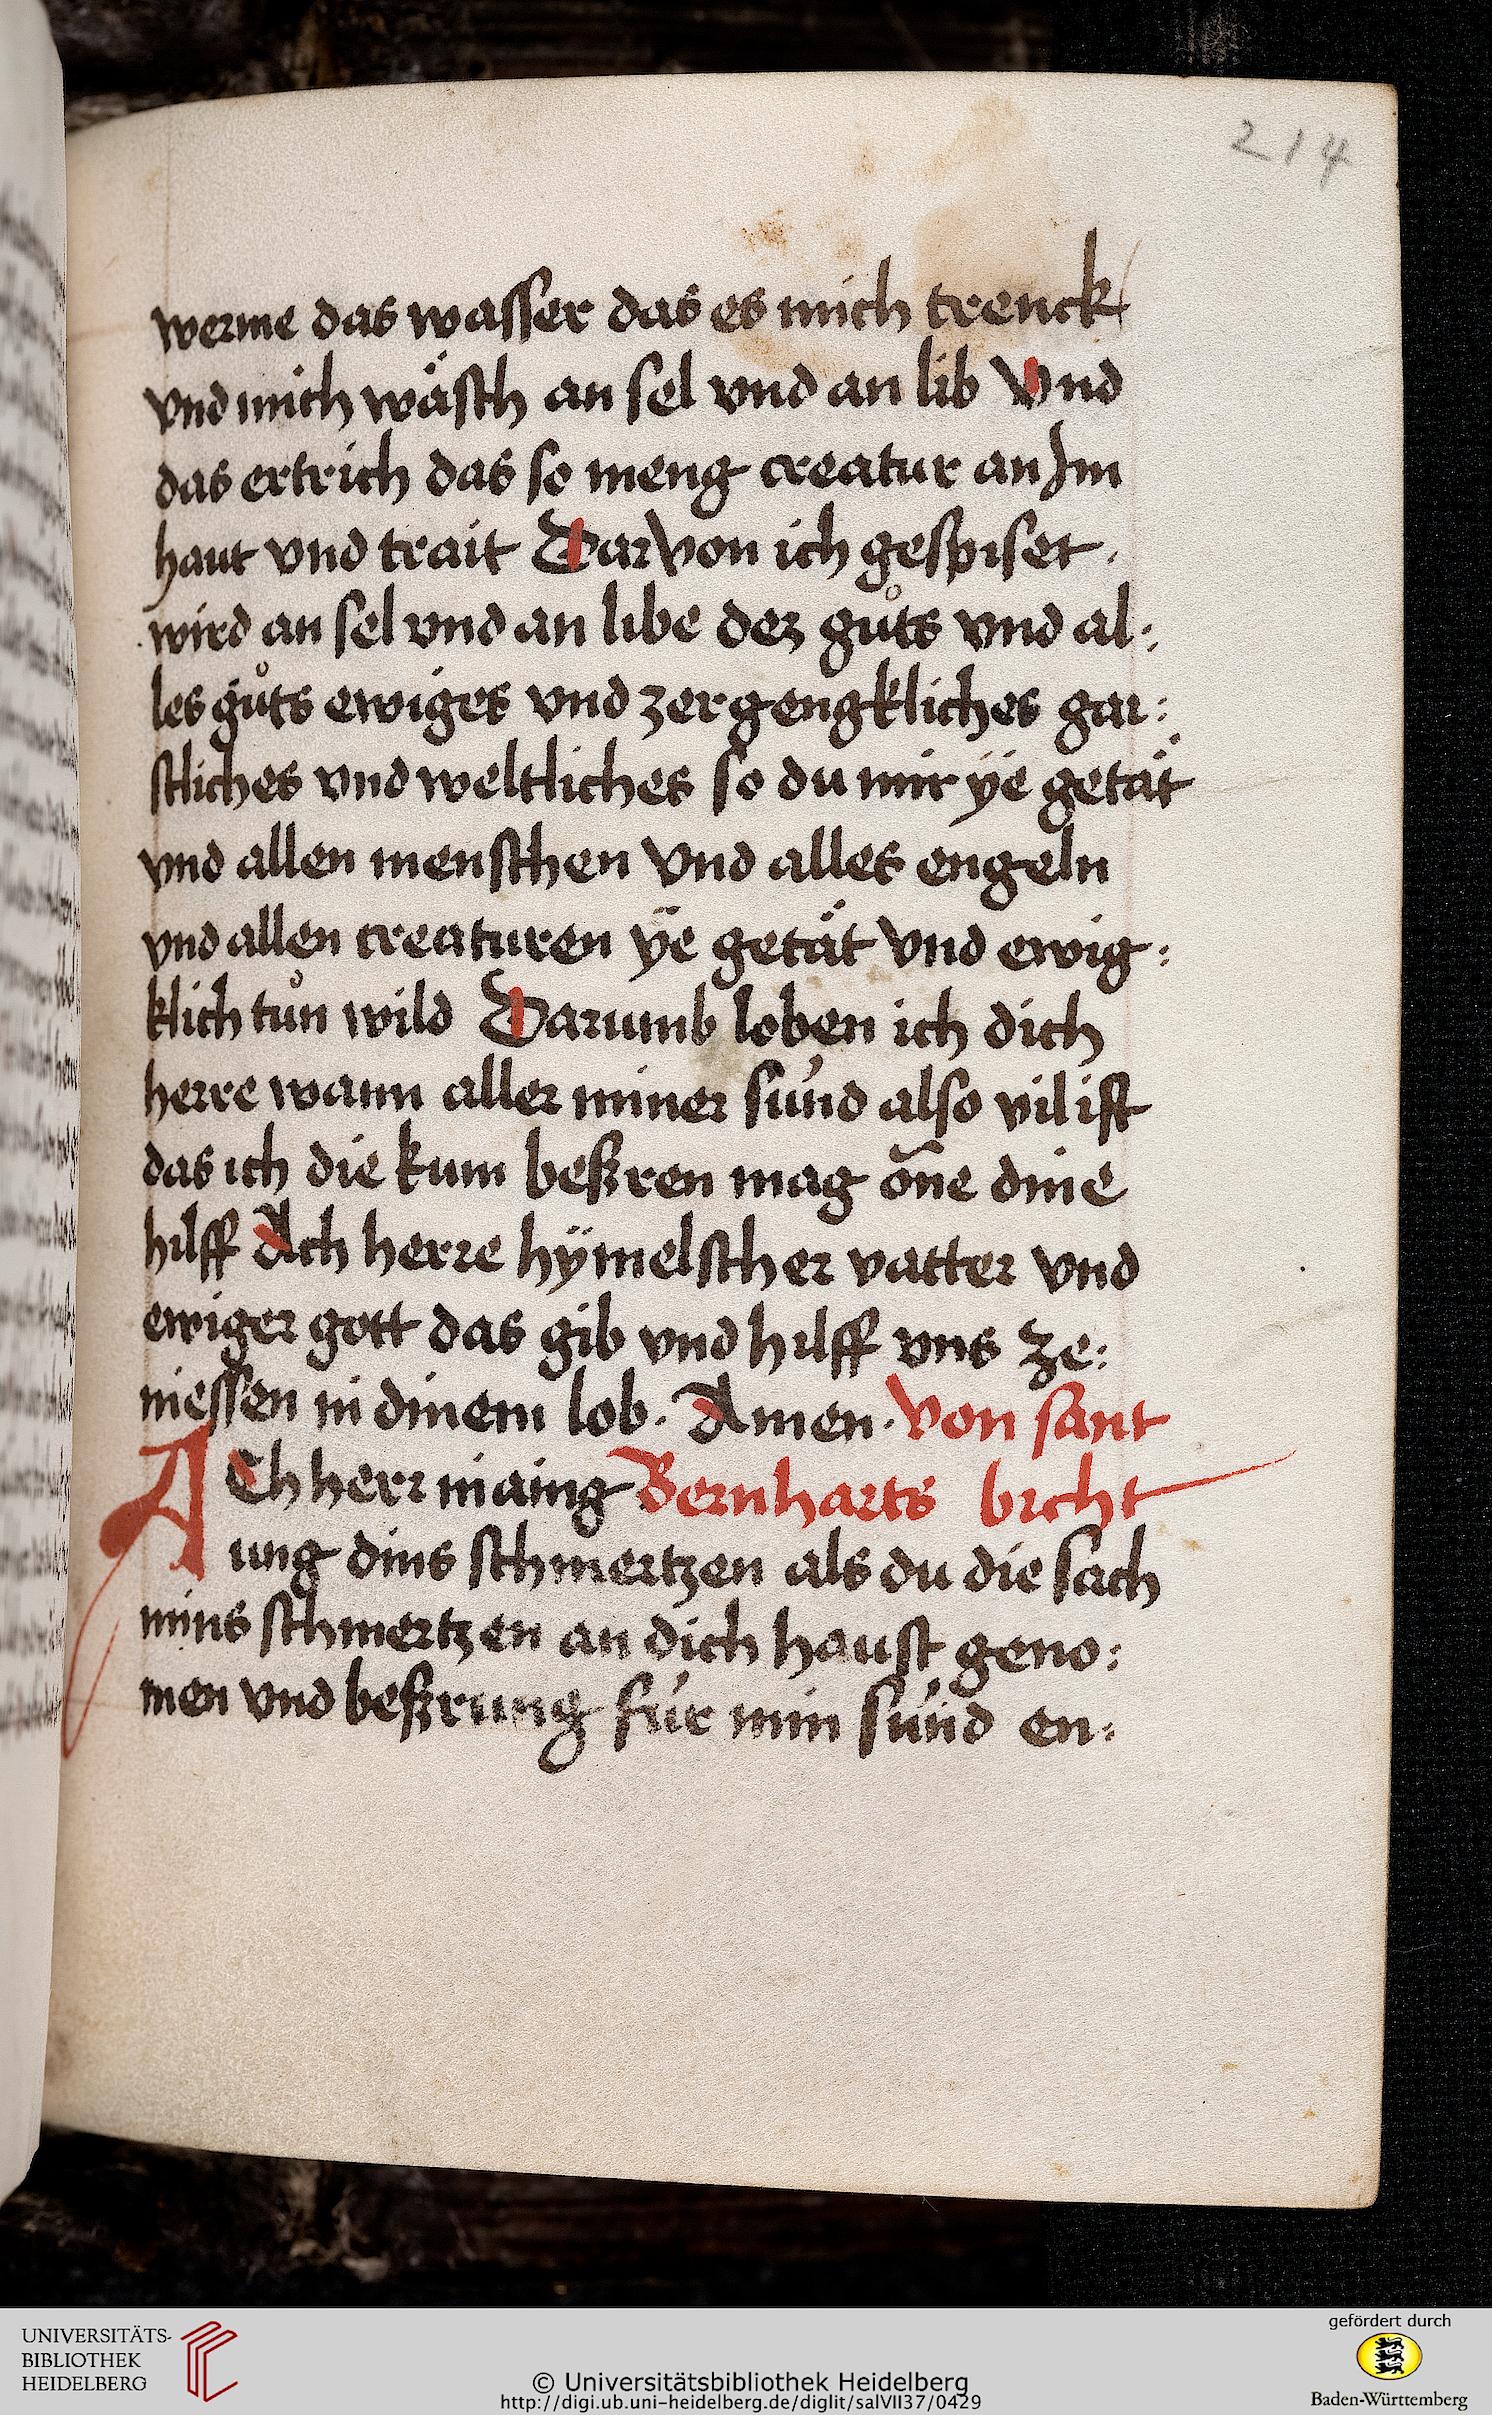 214
werme das wasser das es mich trenck
vnd mich wäsch an sel vnd an lib Vnd
das ertrich das so meng creatur an Im
haut vnd trait Dar von ich gespiset.
wird an sel vnd an libe dez gůts vnd al:
les gůts ewiges vnd zergengkliches gai:
stliches vnd weltliches so du mir ÿe getät
vnd allen menschen Vnd alles engeln
vnd allen creaturen ÿe getät Vnd ewig:
klich tůn wild Darumb loben ich dich
herre wann aller miner súnd also vil ist
das ich die kum beßren mag ōne dine
hilff Ach herre hÿmelscher vatter vnd
ewiger gott das gib vnd hilff vns ze:
niessen in dinem lob. Amen. Von sant
ACh herr inaing Bernharts bicht
ung dins schmertzen als du die sach
mins schmertzen an dich haust geno:
men vnd beßrung für min súnd en:
UNIVERSITÄTS-
BIBLIOTHEK
HEIDELBERG
© Universitätsbibliothek Heidelberg
http://digi.ub.uni-heidelberg.de/diglit/salVII37/0429
gefördert durch
Baden-Württemberg